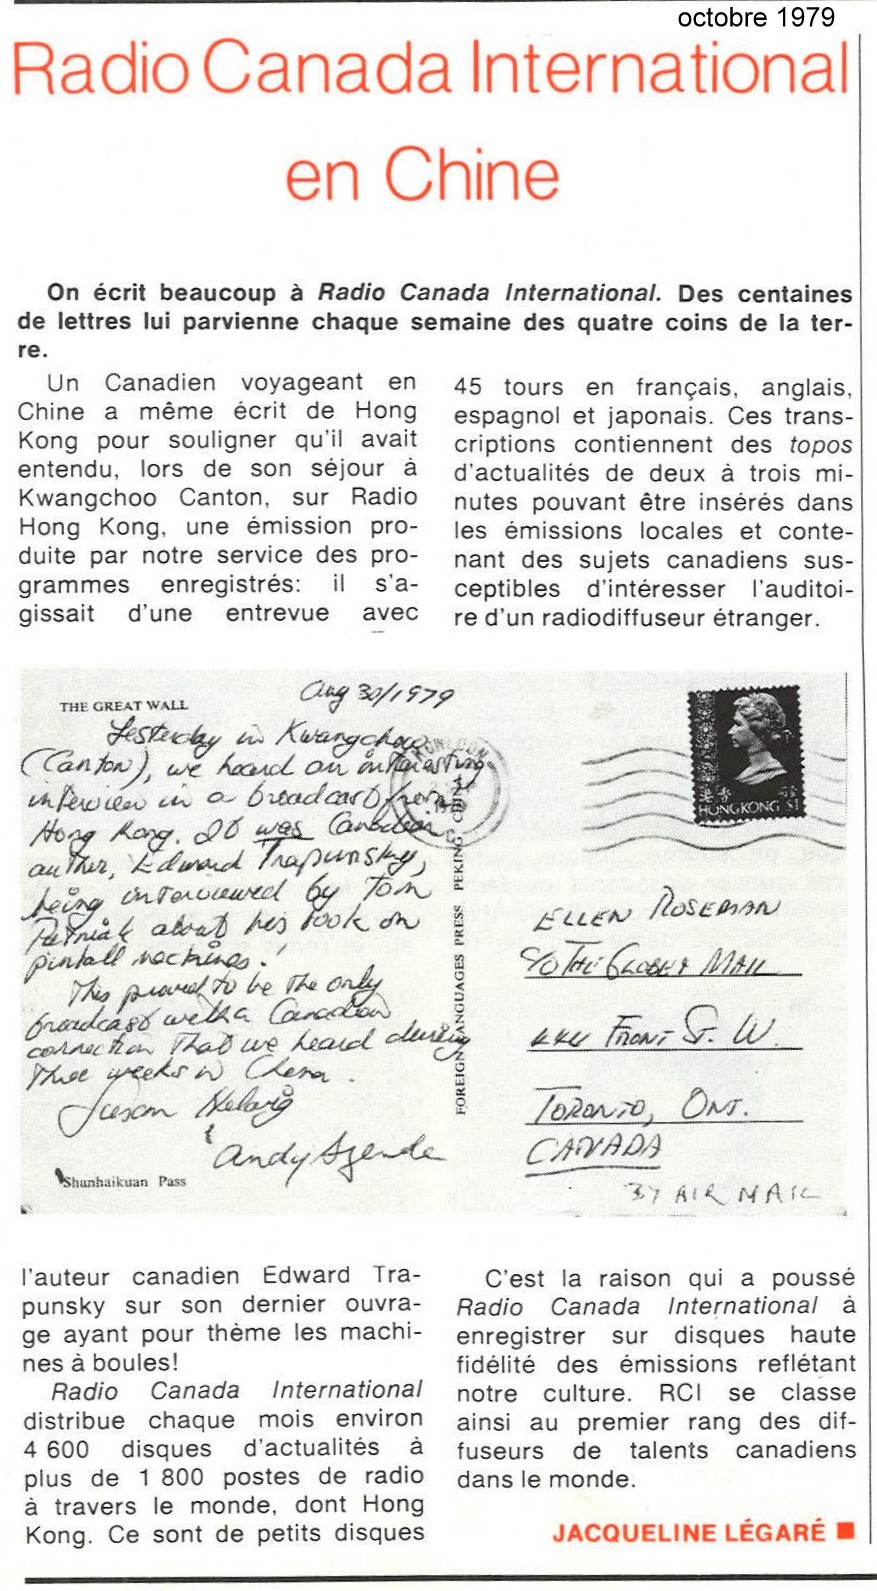 octobre 1979
Radio Canada International
en Chine
On écrit beaucoup à Radio Canada International. Des centaines
de lettres lui parvienne chaque semaine des quatre coins de la ter-
re.
Un Canadien voyageant en
Chine a même écrit de Hong
Kong pour souligner qu'il avait
entendu, lors de son séjour à
Kwangchoo Canton, sur Radio
Hong Kong, une émission pro-
duite par notre service des pro-
grammes enregistrés: il s'a-
gissait d'une entrevue avec
THE GREAT WALL
Aug 30/1979
Yesterday in Kwangchoo
(Canton), we heard an interesting
interview in a broadcast from
Hong Kong. It was Canadian
author, Edward Trapunsky,
being interviewed by Tom
about his book on
pinball machines.
This proved to be the only
broadcast with a Canadian
connection that we heard during
three weeks in China.
Susan
& Andy
Shanhaikuan Pass
FOREIGN LANGUAGES PRESS PEKING CHINA
KOWLOON
HONG KONG $1
ELLEN ROSEMAN
c/o THE GLOBE & MAIL
444 FRONT ST. W.
TORONTO, ONT.
CANADA
BY AIR MAIL
l'auteur canadien Edward Tra-
punsky sur son dernier ouvra-
ge ayant pour thème les machi-
nes à boules!
Radio Canada International
distribue chaque mois environ
4 600 disques d'actualités à
plus de 1 800 postes de radio
à travers le monde, dont Hong
Kong. Ce sont de petits disques
45 tours en français, anglais,
espagnol et japonais. Ces trans-
criptions contiennent des topos
d'actualités de deux à trois mi-
nutes pouvant être insérés dans
les émissions locales et conte-
nant des sujets canadiens sus-
ceptibles d'intéresser l'auditoi-
re d'un radiodiffuseur étranger.
C'est la raison qui a poussé
Radio Canada International à
enregistrer sur disques haute
fidélité des émissions reflétant
notre culture. RCI se classe
ainsi au premier rang des dif-
fuseurs de talents canadiens
dans le monde.
JACQUELINE LÉGARÉ